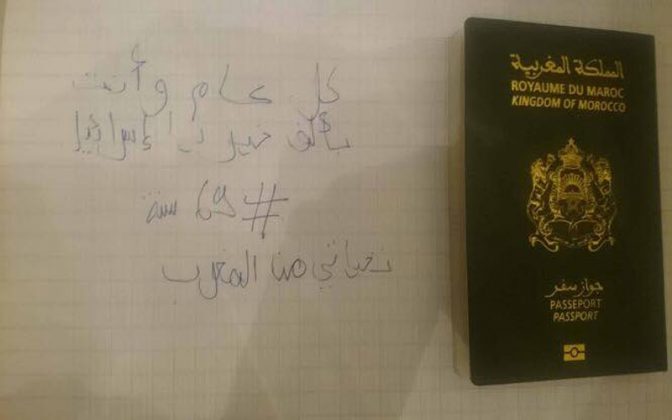 كل عام وأنت
بألف خير يا إسرائيل
# 69 سنة
تحياتي من المغرب
المملكة المغربية
ROYAUME DU MAROC
KINGDOM OF MOROCCO
جواز سفر
PASSEPORT
PASSPORT